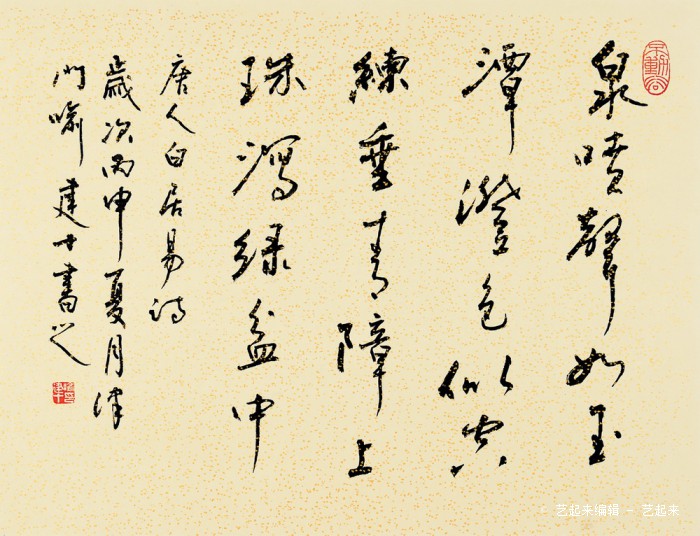 泉噴聲如玉
潭澄色似空
練垂青障上
珠瀉綠盆中
唐人白居易詩
歲次丙申夏月津
門喻建十書之
艺起来编辑 - 艺起来